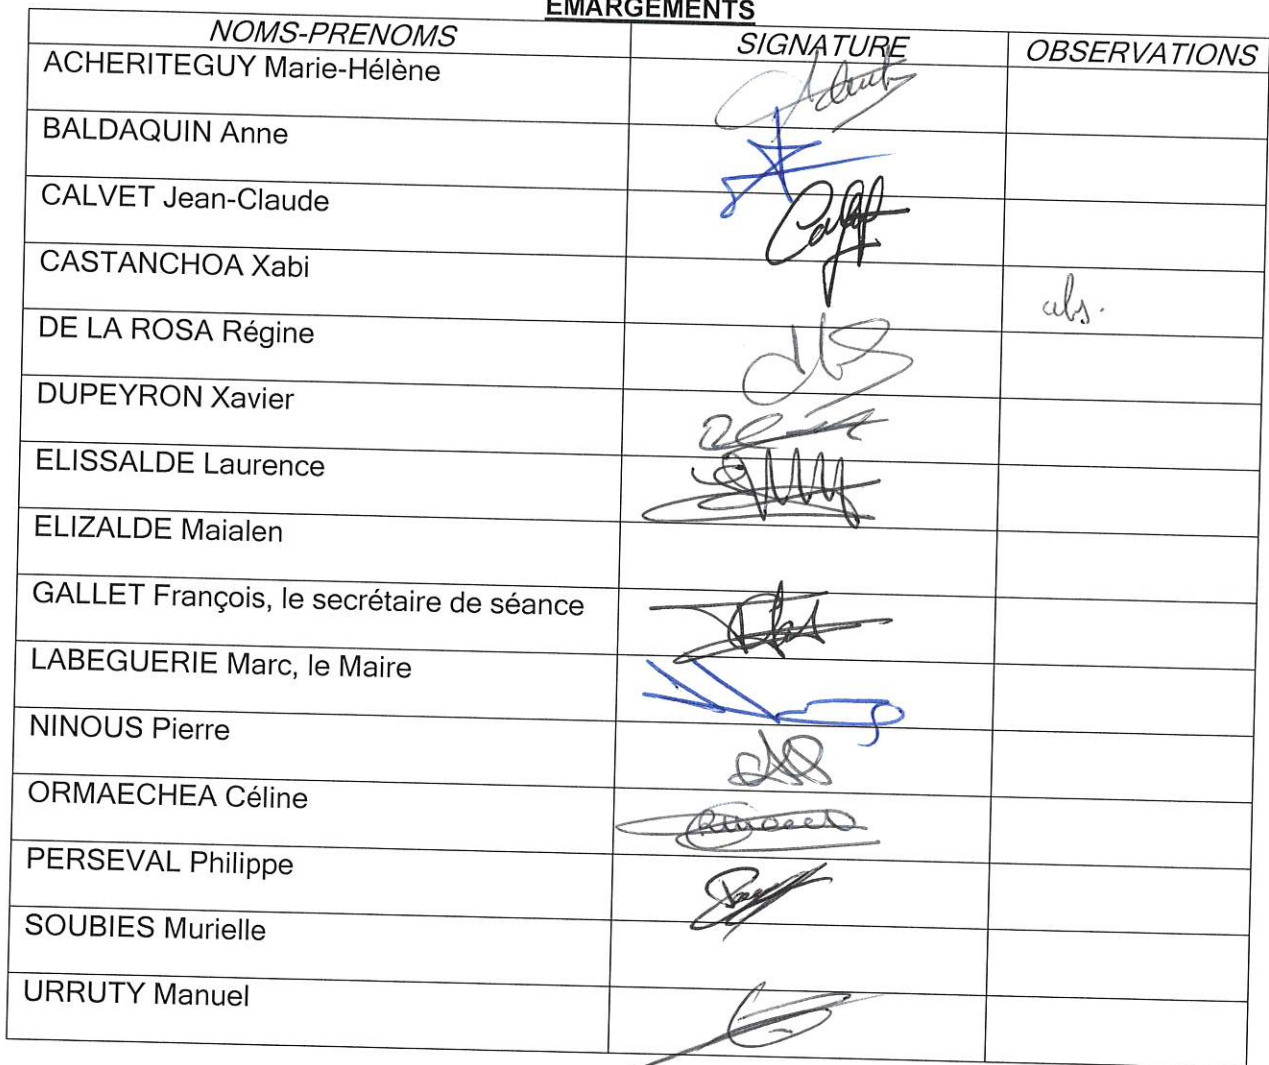 EMARGEMENTS
NOMS-PRENOMS SIGNATURE OBSERVATIONS
ACHERITEGUY Marie-Hélène
BALDAQUIN Anne
CALVET Jean-Claude
CASTANCHOA Xabi abs.
DE LA ROSA Régine
DUPEYRON Xavier
ELISSALDE Laurence
ELIZALDE Maialen
GALLET François, le secrétaire de séance
LABEGUERIE Marc, le Maire
NINOUS Pierre
ORMAECHEA Céline
PERSEVAL Philippe
SOUBIES Murielle
URRUTY Manuel